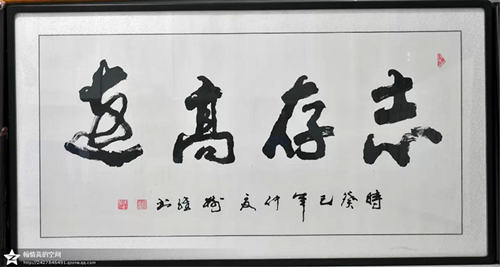 志存高远
時癸巳年仲夏
翰情真的空间
http://2427646491.qzone.qq.com